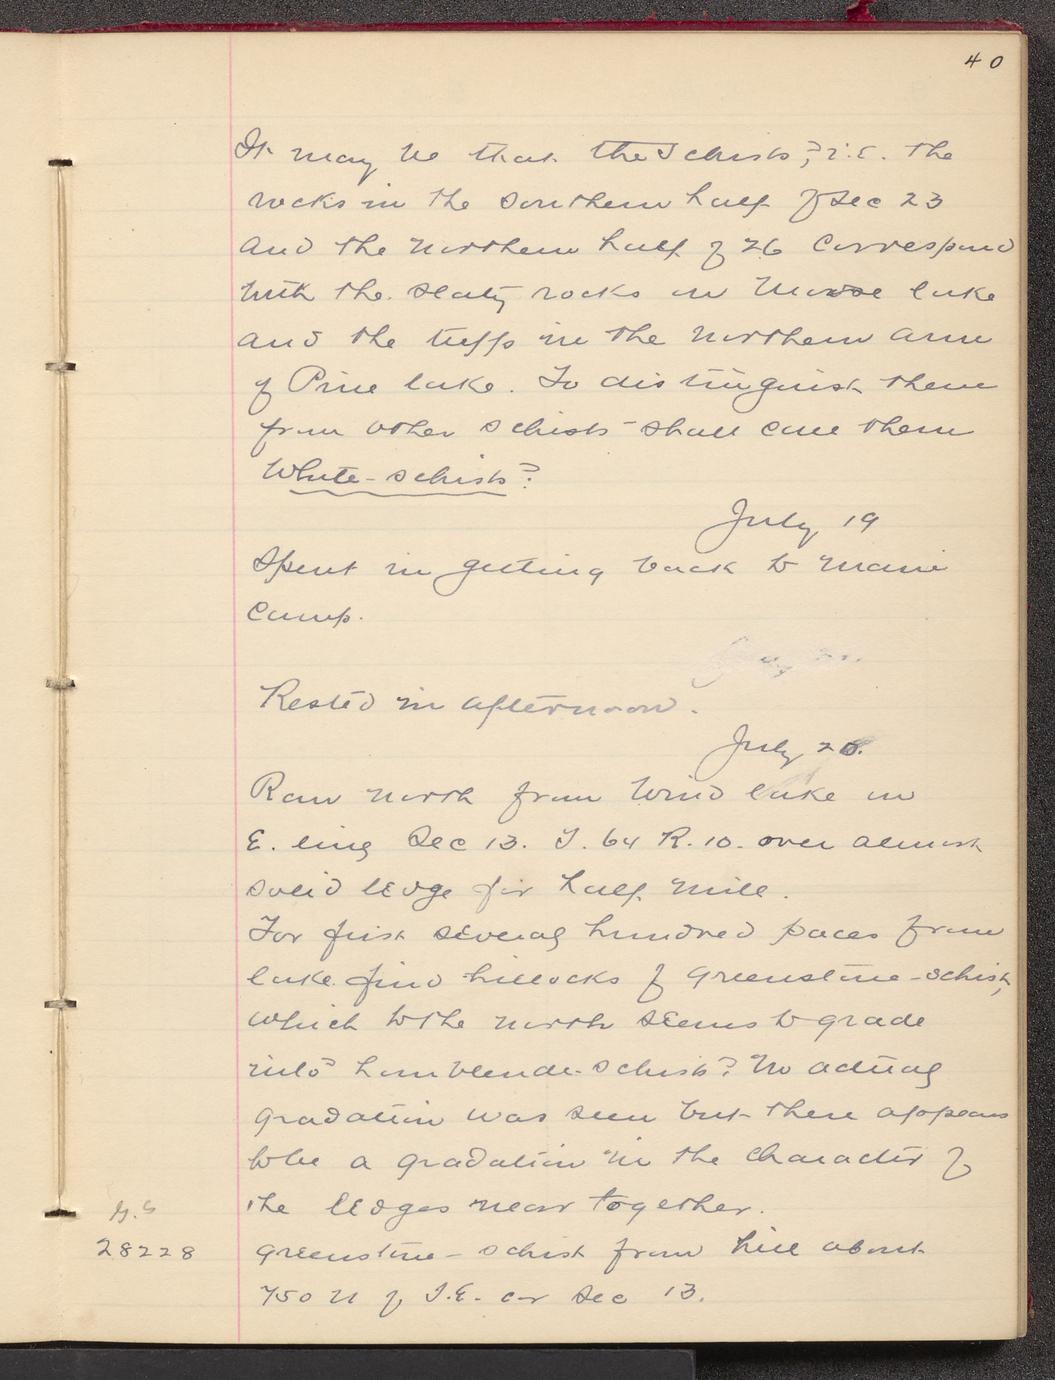 40
It may be that the schists,? i.e. the
rocks in the southern half of Sec 23
and the northern half of 26 correspond
with the slaty rocks in Moose lake
and the tuffs in the northern arm
of Pine lake. To distinguish them
from other schists - shall call them
White-schists?
July 19
Spent in getting back to main
camp.
Rested in afternoon.
July 20.
Ran north from Wind lake in
E. line Sec 13. T. 64 R. 10. over almost
solid ledge for half mile.
For first several hundred paces from
lake find hillocks of greenstone-schist,
which to the north seems to grade
into hornblende-schist? No actual
gradation was seen but there appears
to be a gradation in the character of
the ledges near together.
G.S
28228 greenstone-schist from hill about
750 N of S.E. cor Sec 13.